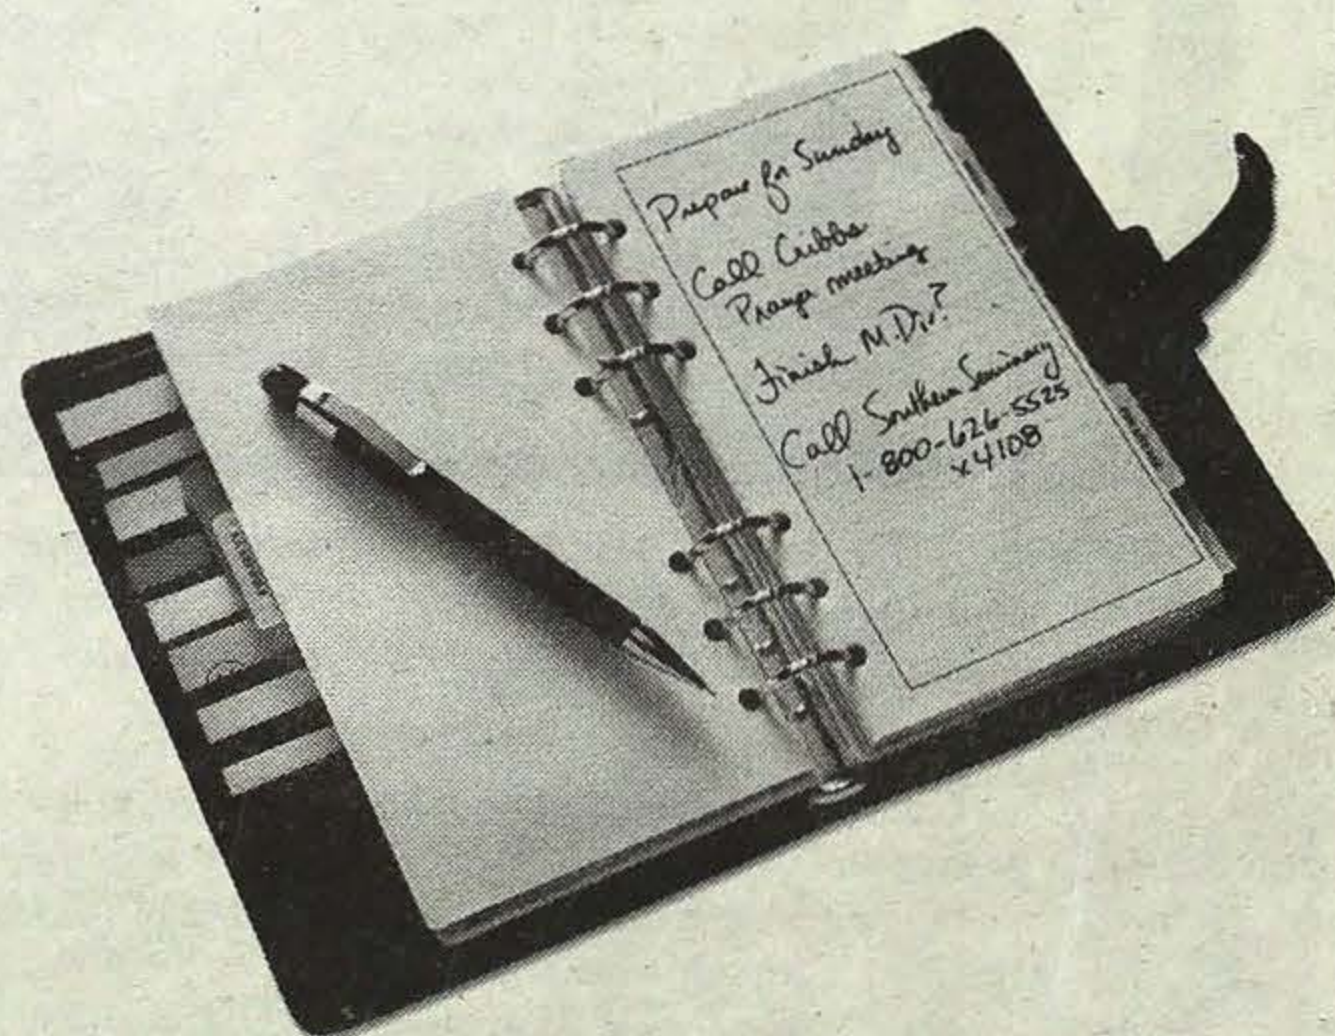 Prepare for Sunday
Call Cribbs
Prayer meeting
Finish M.Div.?
Call Southern Seminary
1-800-626-5525
x4108